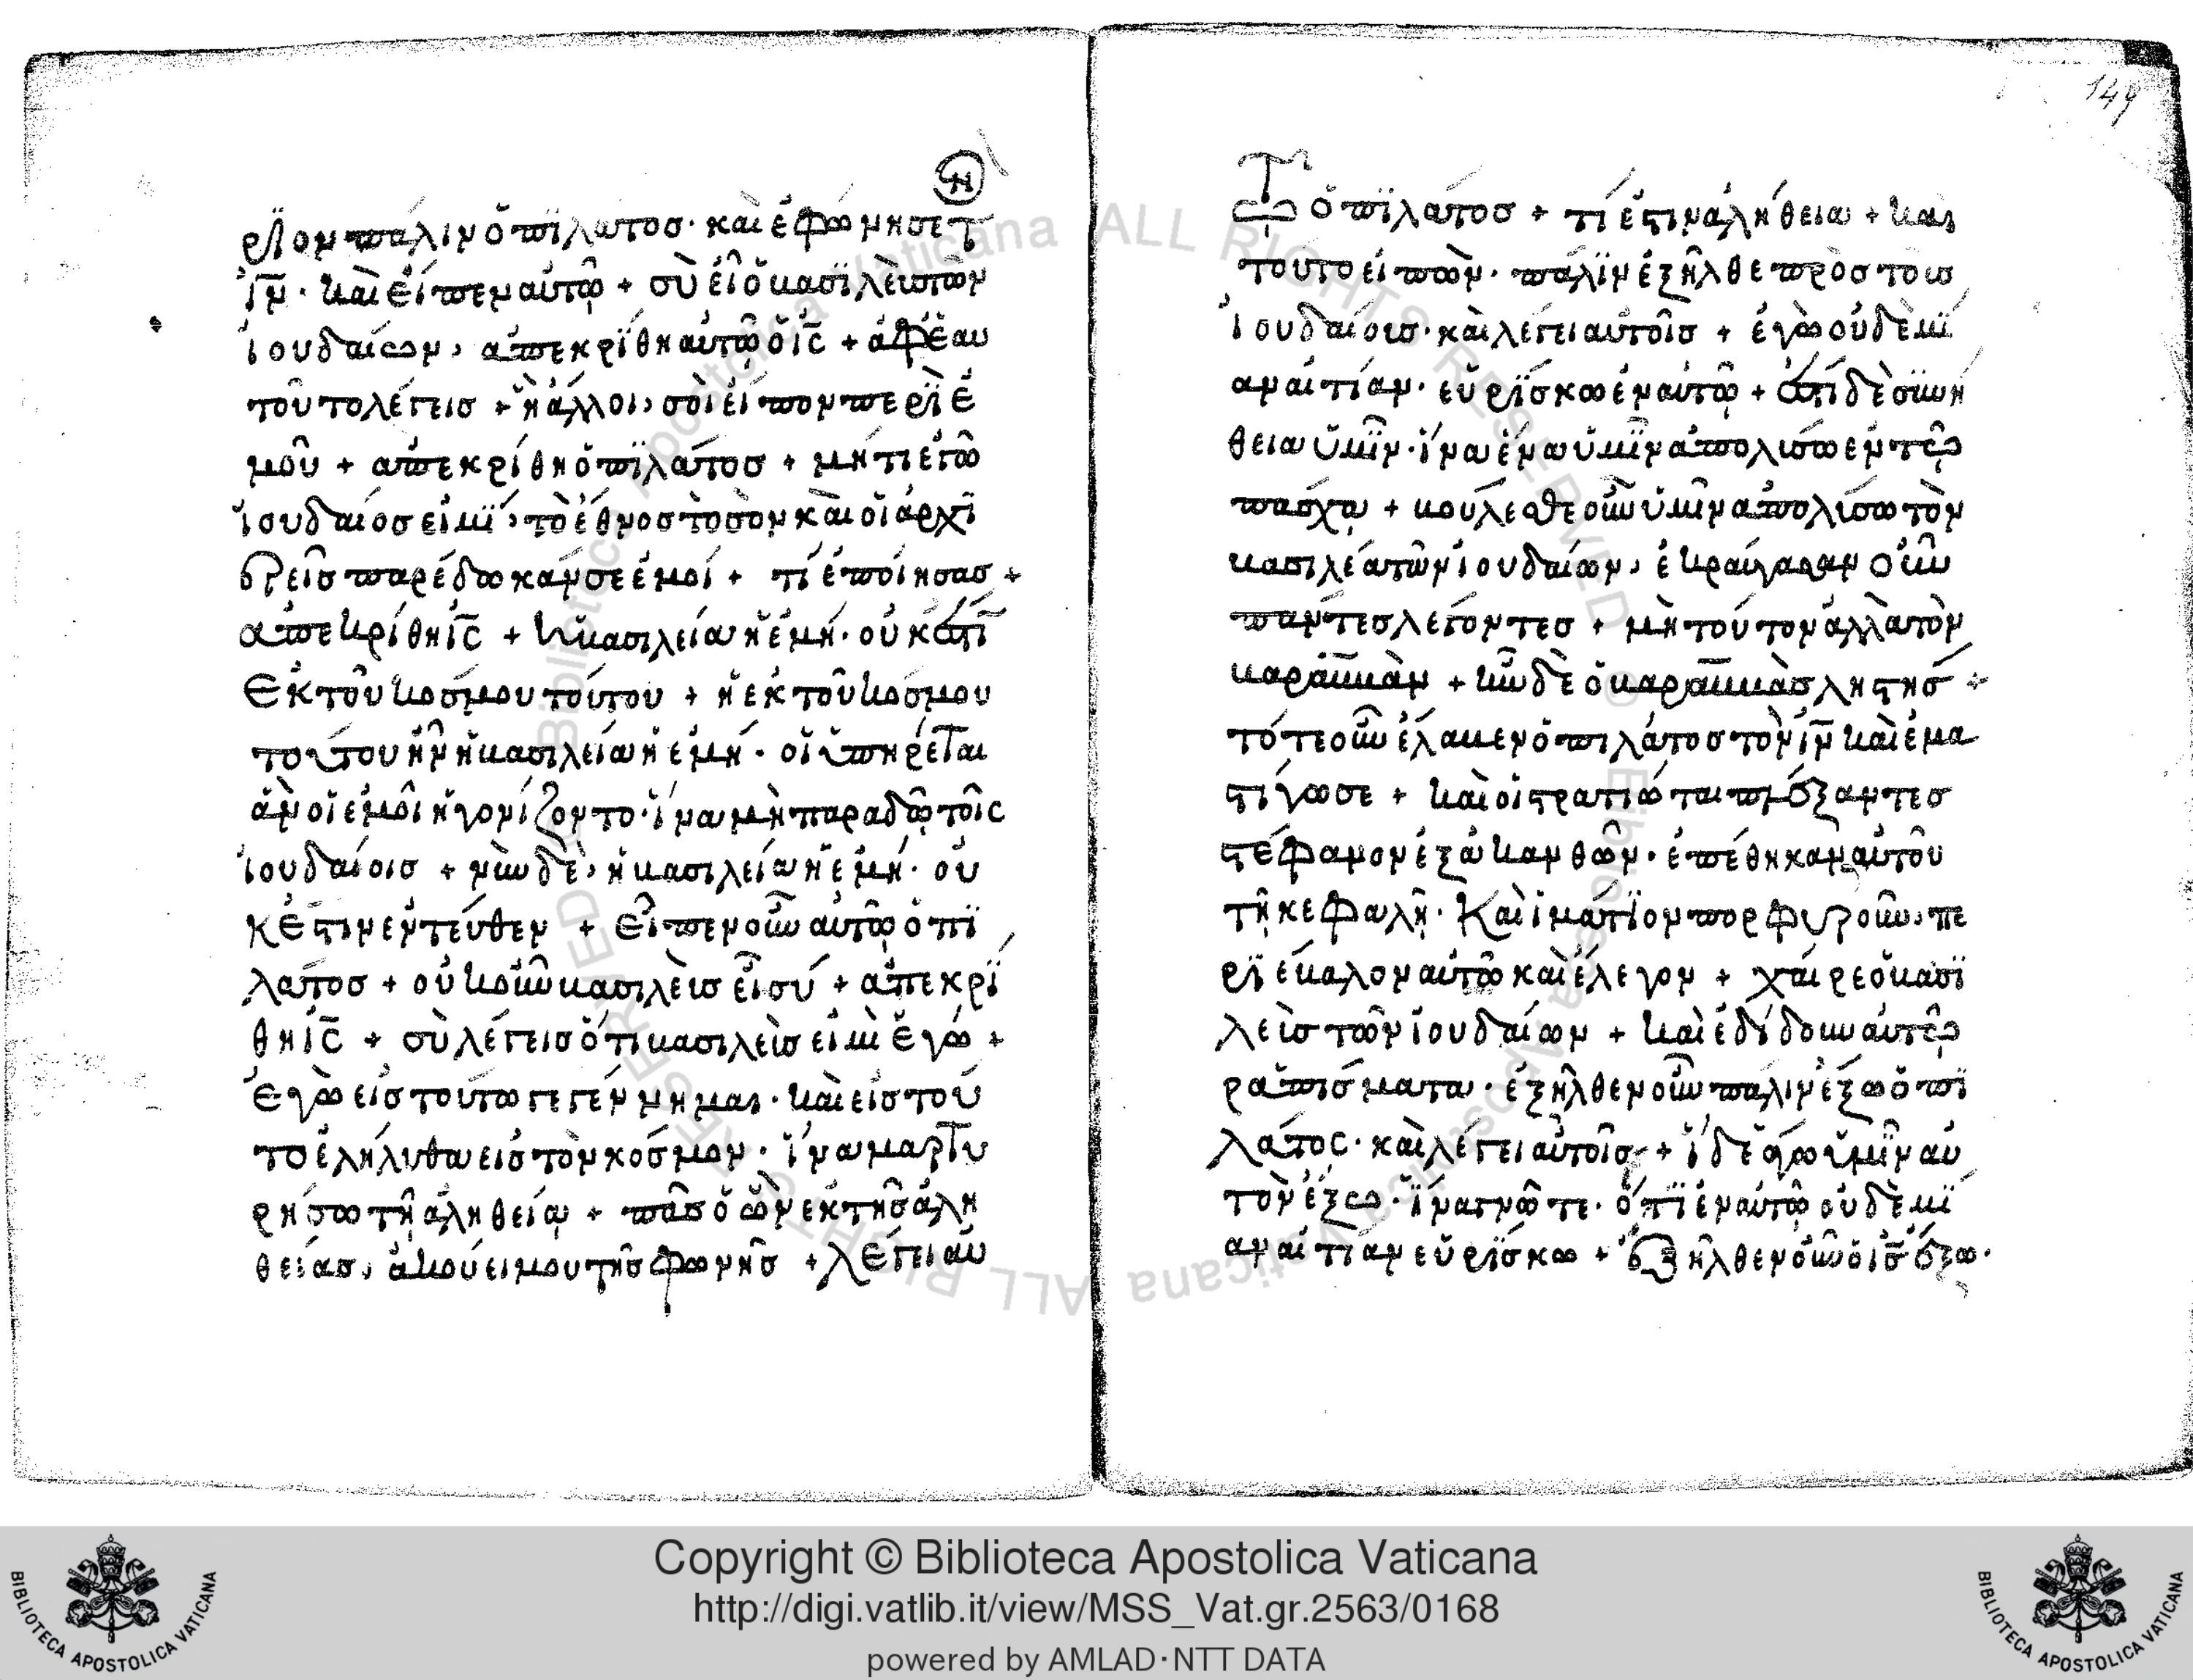 ριον παλιν ὁ πϊλάτος· καὶ ἐφώνησε τ
ἰν· καὶ εἶπεν αὐτῶ + σὺ εἶ ὁ βασϊλεὺς τῶν
ἰουδαίων, ἀπεκρίθη αὐτῶ ὁ ις + ἀφ ἑαυ
τοῦ τοῦτο λέγεις + ἢ ἄλλοι, σοὶ εἶπον περὶ ἐ
μοῦ + ἀπεκρίθη ὁ πϊλάτος + μή τι ἐγὼ
ἰουδαίος εἰμὶ, τὸ ἔθνος τὸ σὸν καὶ οἱ ἀρχι
ερεῖς παρέδωκαν σε ἐμοί + τί ἐποίησας +
ἀπεκρίθη ις + ἡ βασιλεία ἡ ἐμή· οὐκ ἔστι
ἐκ τοῦ κοσμου τούτου + ἢ ἐκ τοῦ κοσμου
τούτου ἦν ἡ βασιλεία ἡ ἐμή· οἱ ὑπηρέται
ἂν οἱ ἐμοὶ ἠγονίζοντο· ἵνα μὴ παραδῶ τοῖς
ἰουδαίοις + νῦν δὲ, ἡ βασιλεία ἡ ἐμή· οὐ
κ ἔστιν ἐντεύθεν + εἶπεν οὖν αὐτῶ ὁ πϊ
λάτος + οὐκοῦν βασιλεὺς εἶ σύ + ἀπεκρί
θη ις + σὺ λέγεις ὅτι βασιλεὺς εἰμὶ ἐγώ +
ἐγὼ εἰς τούτω γεγέννημαι· καὶ εἰς τοῦ
το ἐλήλυθα εἰς τὸν κόσμον· ἵνα μαρτυ
ρήσω τῆ ἀληθεία + πᾶς ὁ ὢν ἐκ τῆς ἀλη
θείας, ἀκούει μου τῆς φωνῆς + λέγει αὐ
149
τῶ ὁ πϊλάτος + τί ἐστιν ἀλήθεια + και
τοῦτο εἰπὼν· πάλϊν ἐξῆλθε πρὸς τοὺς
ἰουδαίους· καὶ λέγει αὐτοῖς + ἐγὼ οὐδὲμϊ
αν αἰτίαν· εὑρϊσκω ἐν αὐτῶ + ἔστι δὲ συνή
θεια ὑμῖν· ἵνα ἕνα ὑμῖν ἀπολύσω ἐν τῶ
πάσχα + βούλεσθε οὖν ὑμῖν ἀπολίσω τὸν
βασιλέα τῶν ἰουδαίων, ἐκραύγασαν οὖν
πάντες λέγοντες + μὴ τούτον ἀλλὰ τὸν
βαραββὰν + ἦν δὲ ὁ βαραββὰς ληστής +
τότε οὖν ἔλαβεν ὁ πιλάτος τὸν ιν καὶ ἐμα
στίγωσε + καὶ οἱ στρατιώται πλέξαντες
στέφανον ἐξ ἀκανθῶν· ἐπέθηκαν αὐτοῦ
τῆ κεφαλῆ· καὶ ἱμάτϊον πορφυροῦν, πε
ρϊέβαλον αὐτῶ καὶ ἔλεγον + χαίρε ὁ βασϊ
λεὺς τῶν ἰουδαίων + καὶ ἐδίδουν αὐτῶ
ραπίσματα· ἐξῆλθεν οὖν πάλιν ἔξω ὁ πϊ
λάτος· καὶ λέγει αὐτοῖς + ἴδε ἄγω ὑμῖν αὐ
τὸν ἔξω· ἵνα γνῶτε· ὅτϊ ἐν αὐτῶ οὐδὲμϊ
αν αἰτίαν εὑρϊσκω + ἐξῆλθεν οὖν ὁ ις ἔξω·
Copyright © Biblioteca Apostolica Vaticana
http://digi.vatlib.it/view/MSS_Vat.gr.2563/0168
powered by AMLAD·NTT DATA
BIBLIOTECA APOSTOLICA VATICANA
BIBLIOTECA APOSTOLICA VATICANA